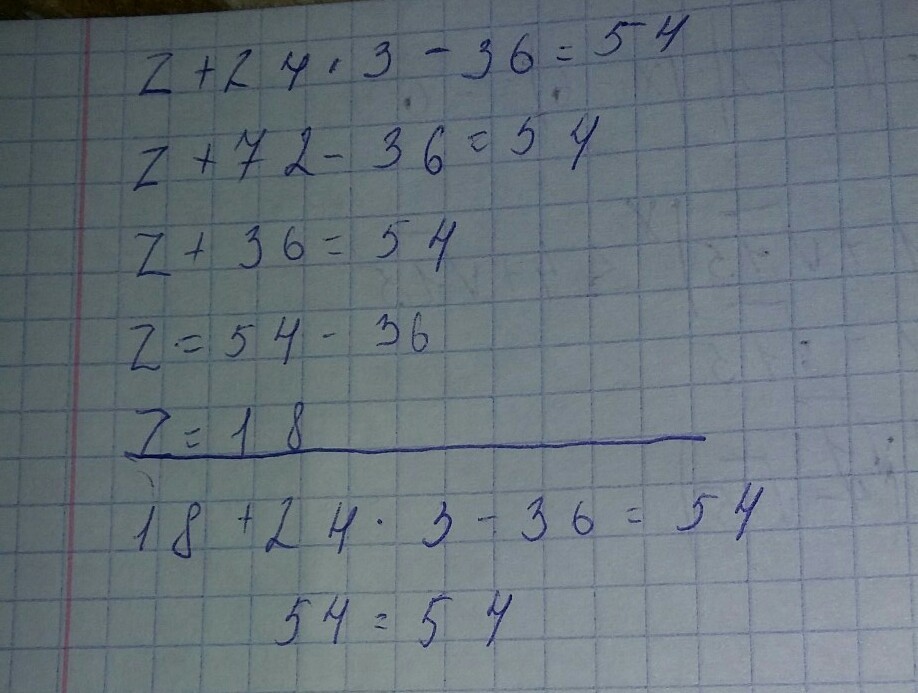 Z + 24 · 3 - 36 = 54
Z + 72 - 36 = 54
Z + 36 = 54
Z = 54 - 36
Z = 18
18 + 24 · 3 - 36 = 54
54 = 54